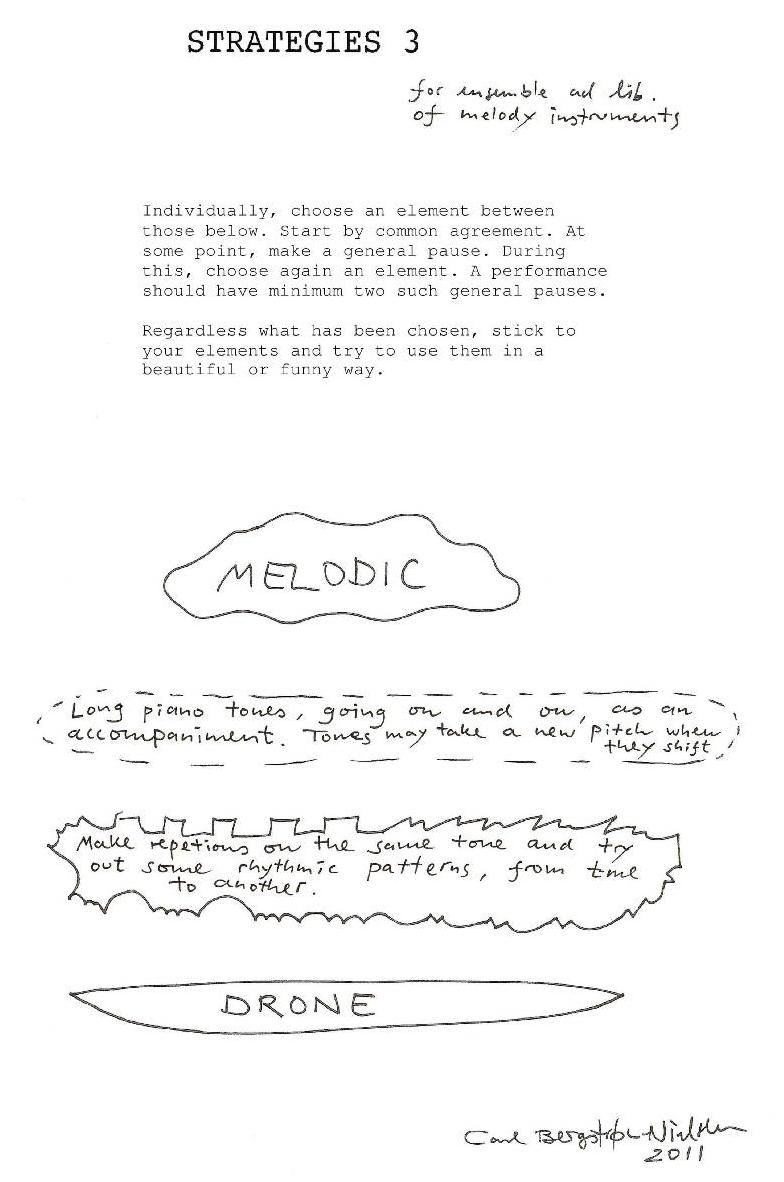 STRATEGIES 3
for ensemble ad lib.
of melody instruments
Individually, choose an element between
those below. Start by common agreement. At
some point, make a general pause. During
this, choose again an element. A performance
should have minimum two such general pauses.
Regardless what has been chosen, stick to
your elements and try to use them in a
beautiful or funny way.
MELODIC
Long piano tones, going on and on, as an
accompaniment. Tones may take a new pitch when
they shift
Make repetions on the same tone and try
out some rhythmic patterns, from time
to another.
DRONE
Carl Bergstrøm-Nielsen
2011